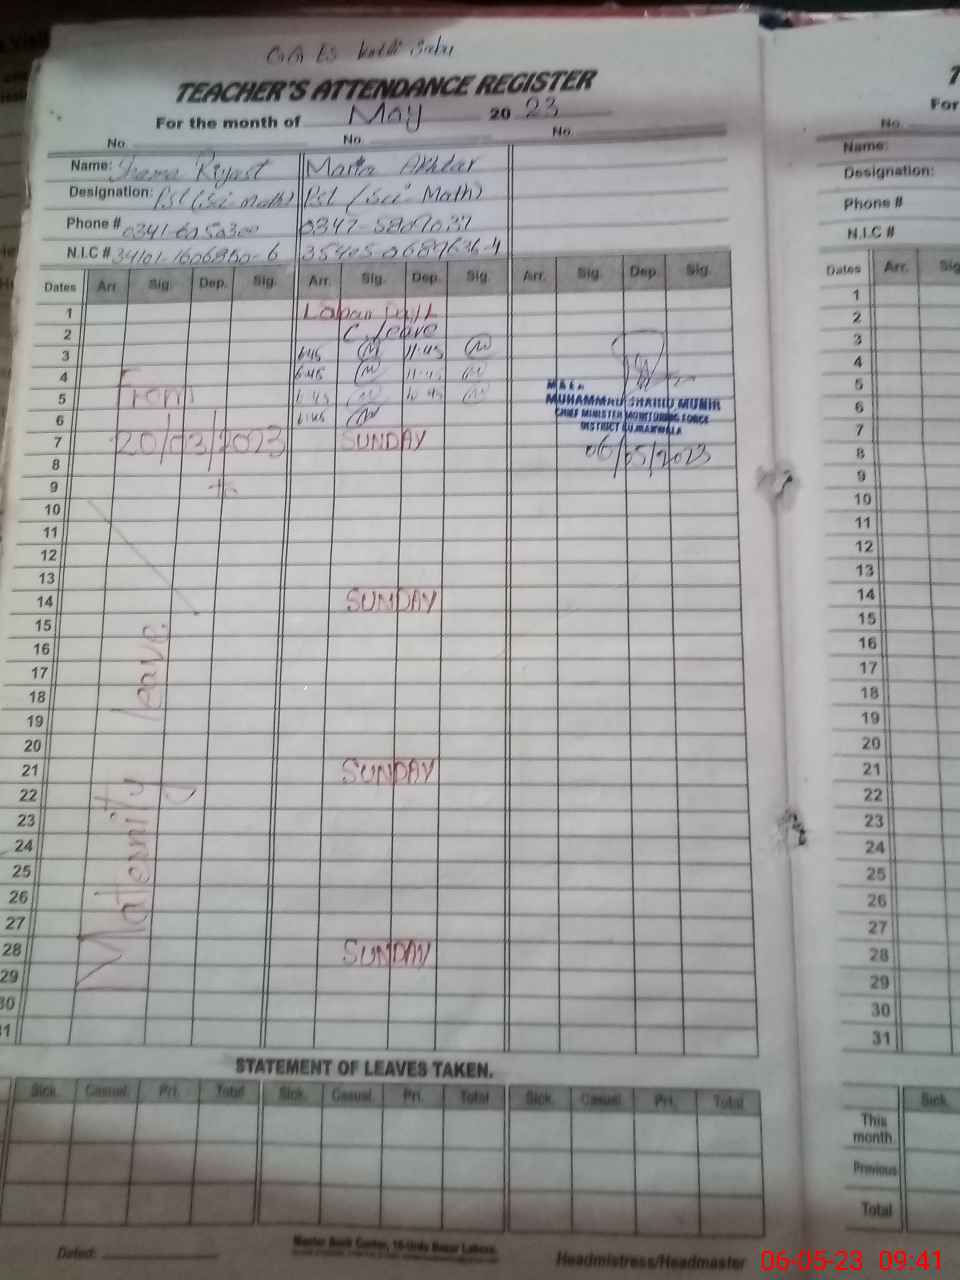 TEACHER'S ATTENDANCE REGISTER
For the month of May 20 23
No. No. No.
Name: Riyast Maria Akhtar
Designation: Pst (Sci Math) Pst (Sci Math)
Phone # 0347-5809037
N.I.C # 34101-1606850-6 35405-0689636-4
Dates Arr. Sig. Dep. Sig. Arr. Sig. Dep. Sig. Arr. Sig. Dep. Sig.
1
2 C. leave
3 6:45 11:45
4 6:45 11:45
5 6:45 11:45
6 6:45
From
20/03/2023
to
Maternity leave
MUHAMMAD SHAHID MUNIR
CHIEF MINISTER MONITORING FORCE
DISTRICT GUJRANWALA
06/05/2023
7 SUNDAY
8
9
10
11
12
13
14 SUNDAY
15
16
17
18
19
20
21 SUNDAY
22
23
24
25
26
27
28 SUNDAY
29
30
31
STATEMENT OF LEAVES TAKEN.
Sick. Casual. Pri. Total Sick. Casual. Pri. Total Sick. Casual. Pri. Total
Dated:
Headmistress/Headmaster
T
For
No.
Name:
Designation:
Phone #
N.I.C #
Dates Arr. Sig
1
2
3
4
5
6
7
8
9
10
11
12
13
14
15
16
17
18
19
20
21
22
23
24
25
26
27
28
29
30
31
Sick.
This
month
Previous
Total
06-05-23 09:41